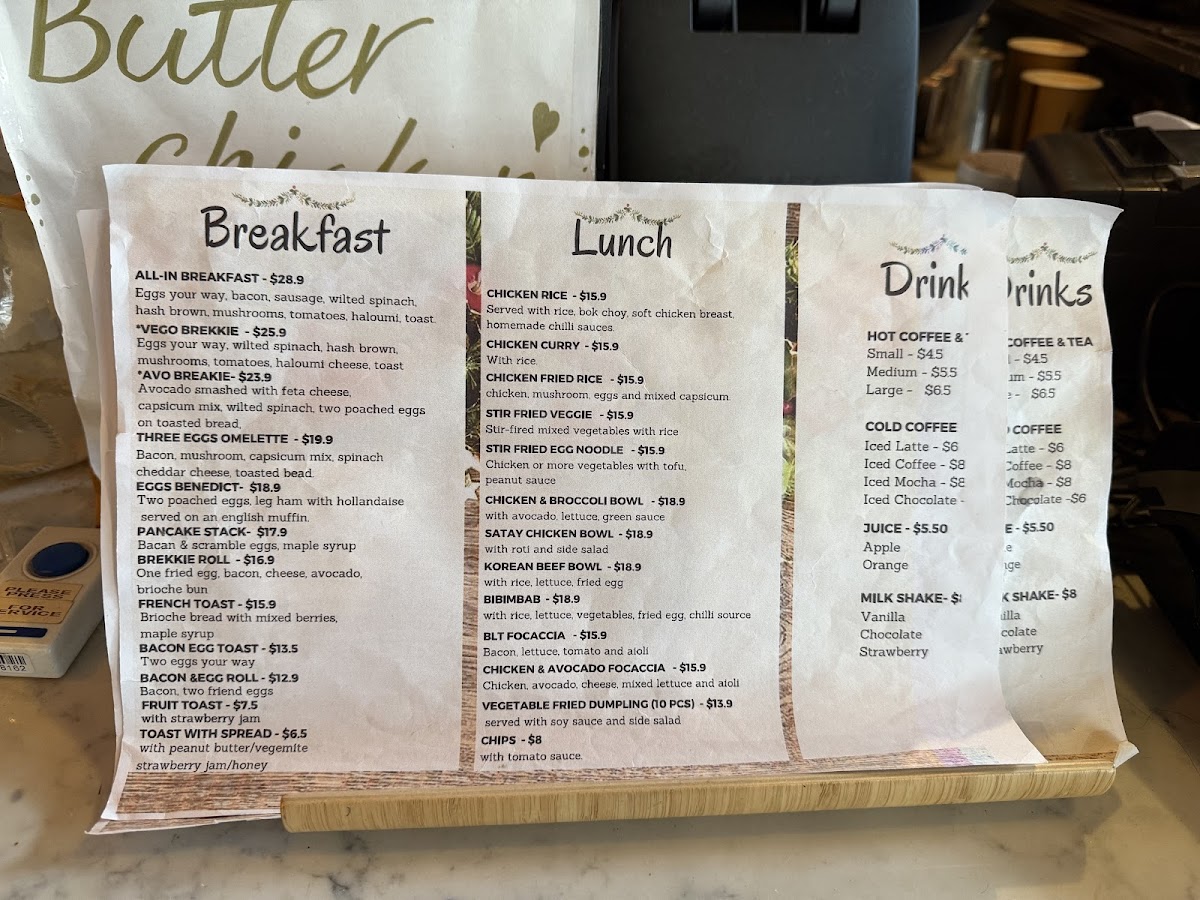 Butter
Breakfast
ALL-IN BREAKFAST - $28.9
Eggs your way, bacon, sausage, wilted spinach,
hash brown, mushrooms, tomatoes, haloumi, toast.
*VEGO BREKKIE - $25.9
Eggs your way, wilted spinach, hash brown,
mushrooms, tomatoes, haloumi cheese, toast
*AVO BREAKIE- $23.9
Avocado smashed with feta cheese,
capsicum mix, wilted spinach, two poached eggs
on toasted bread,
THREE EGGS OMELETTE - $19.9
Bacon, mushroom, capsicum mix, spinach
cheddar cheese, toasted bead.
EGGS BENEDICT- $18.9
Two poached eggs, leg ham with hollandaise
served on an english muffin.
PANCAKE STACK- $17.9
Bacan & scramble eggs, maple syrup
BREKKIE ROLL - $16.9
One fried egg, bacon, cheese, avocado,
brioche bun
FRENCH TOAST - $15.9
Brioche bread with mixed berries,
maple syrup
BACON EGG TOAST - $13.5
Two eggs your way
BACON &EGG ROLL - $12.9
Bacon, two friend eggs
FRUIT TOAST - $7.5
with strawberry jam
TOAST WITH SPREAD - $6.5
with peanut butter/vegemite
strawberry jam/honey
Lunch
CHICKEN RICE - $15.9
Served with rice, bok choy, soft chicken breast,
homemade chilli sauces.
CHICKEN CURRY - $15.9
With rice.
CHICKEN FRIED RICE - $15.9
chicken, mushroom, eggs and mixed capsicum.
STIR FRIED VEGGIE - $15.9
Stir-fired mixed vegetables with rice
STIR FRIED EGG NOODLE - $15.9
Chicken or more vegetables with tofu,
peanut sauce
CHICKEN & BROCCOLI BOWL - $18.9
with avocado, lettuce, green sauce
SATAY CHICKEN BOWL - $18.9
with roti and side salad
KOREAN BEEF BOWL - $18.9
with rice, lettuce, fried egg
BIBIMBAB - $18.9
with rice, lettuce, vegetables, fried egg, chilli source
BLT FOCACCIA - $15.9
Bacon, lettuce, tomato and aioli
CHICKEN & AVOCADO FOCACCIA - $15.9
Chicken, avocado, cheese, mixed lettuce and aioli
VEGETABLE FRIED DUMPLING (10 PCS) - $13.9
served with soy sauce and side salad
CHIPS - $8
with tomato sauce.
Drink
HOT COFFEE &
Small - $4.5
Medium - $5.5
Large - $6.5
COLD COFFEE
Iced Latte - $6
Iced Coffee - $8
Iced Mocha - $8
Iced Chocolate -
JUICE - $5.50
Apple
Orange
MILK SHAKE- $
Vanilla
Chocolate
Strawberry
rinks
COFFEE & TEA
- $4.5
um - $5.5
- $6.5
COFFEE
Latte - $6
Coffee - $8
Mocha - $8
Chocolate -$6
E - $5.50
e
nge
K SHAKE- $8
illa
colate
awberry
PLEASE
PRESS
FOR
SERVICE
8162